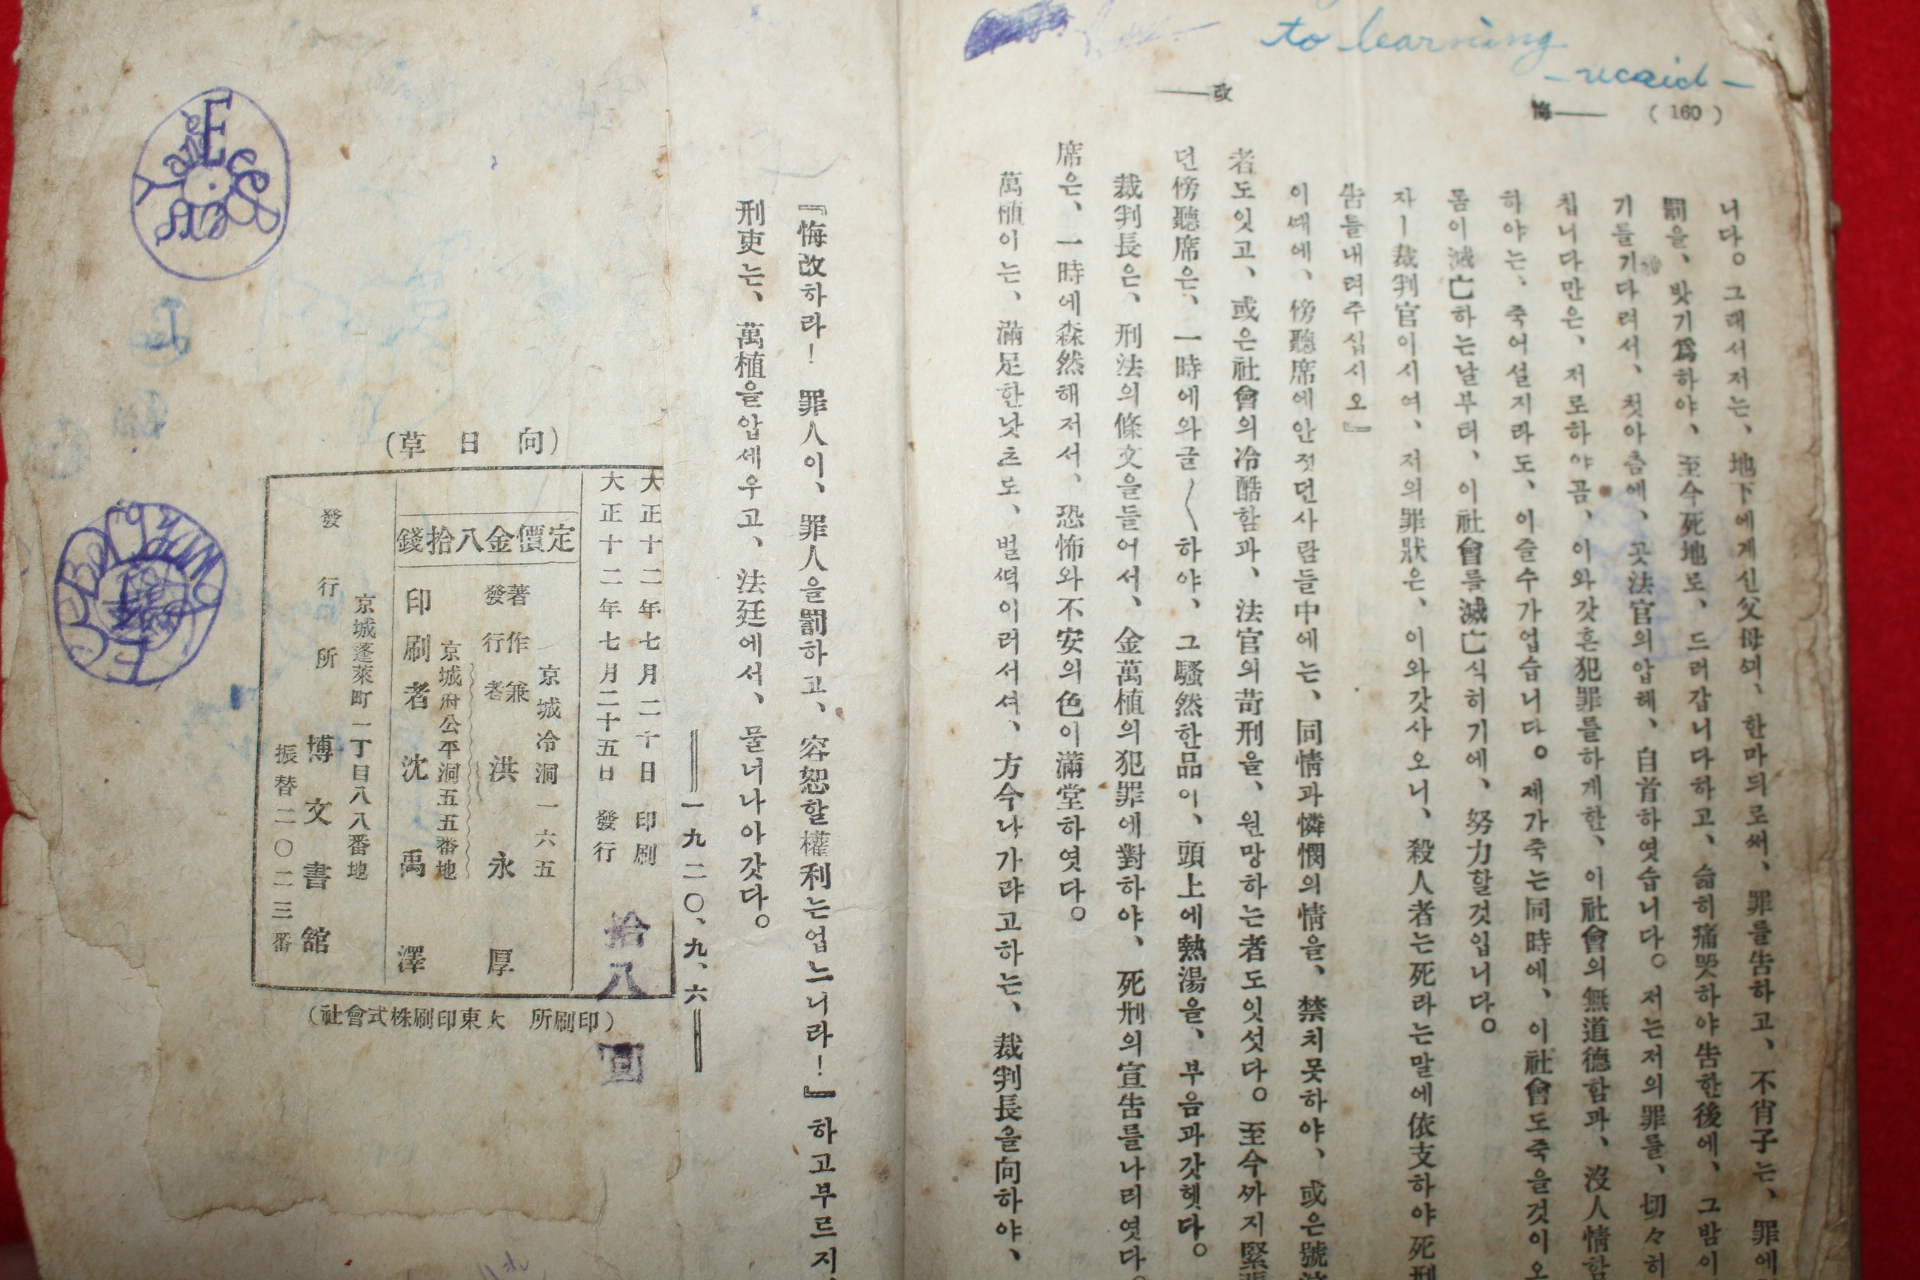 to learning
-ucaid-
( 160 )
悔——
——改
니다。그래서저는、地下에계신父母의、한마듸로써、罪를告하고、不肖子는、罪에
罰을、밧기爲하야、至今死地로、드러갑니다하고、슯히痛哭하야告한後에、그밤이
기를기다려서、첫아츰에、곳法官의압헤、自首하엿습니다。저는저의罪를、切々히
침니다만은、저로하야곰、이와갓흔犯罪를하게한、이社會의無道德함과、沒人情함
하야는、죽어설지라도、이즐수가업습니다。제가죽는同時에、이社會도죽을것이오
몸이滅亡하는날부터、이社會를滅亡식히기에、努力할것입니다。
자ㅣ裁判官이시여、저의罪狀은、이와갓사오니、殺人者는死라는말에依支하야死刑
告를내려주십시오』
이ᄯᅢ에、傍聽席에안젓던사람들中에는、同情과憐憫의情을、禁치못하야、或은號泣
者도잇고、或은社會의冷酷함과、法官의苛刑을、원망하는者도잇섯다。至今ᄭᅡ지緊張
던傍聽席은、一時에와글〱하야、그騷然한品이、頭上에熱湯을、부음과갓헷다。
裁判長은、刑法의條文을들어서、金萬植의犯罪에對하야、死刑의宣告를나리엿다。
席은、一時에森然해저서、恐怖와不安의色이滿堂하엿다。
萬植이는、滿足한낫츠로、벌ᄯᅥᆨ이러서셔、方今나가랴고하는、裁判長을向하야、
『悔改하라! 罪人이、罪人을罰하고、容恕할權利는업느니라!』하고부르지
刑吏는、萬植을압세우고、法廷에서、물너나아갓다。
——一九二〇、九、六——
(草日向)
大正十二年七月二十日 印刷
大正十二年七月二十五日 發行
拾八 回
錢拾八金價定
京城冷洞一六五
著作兼
發行者 洪永厚
京城府公平洞五五番地
印刷者 沈禹澤
京城蓬萊町一丁目八八番地
發行所 博文書館
振替二〇二三番
(社會式株刷印東大 所刷印)